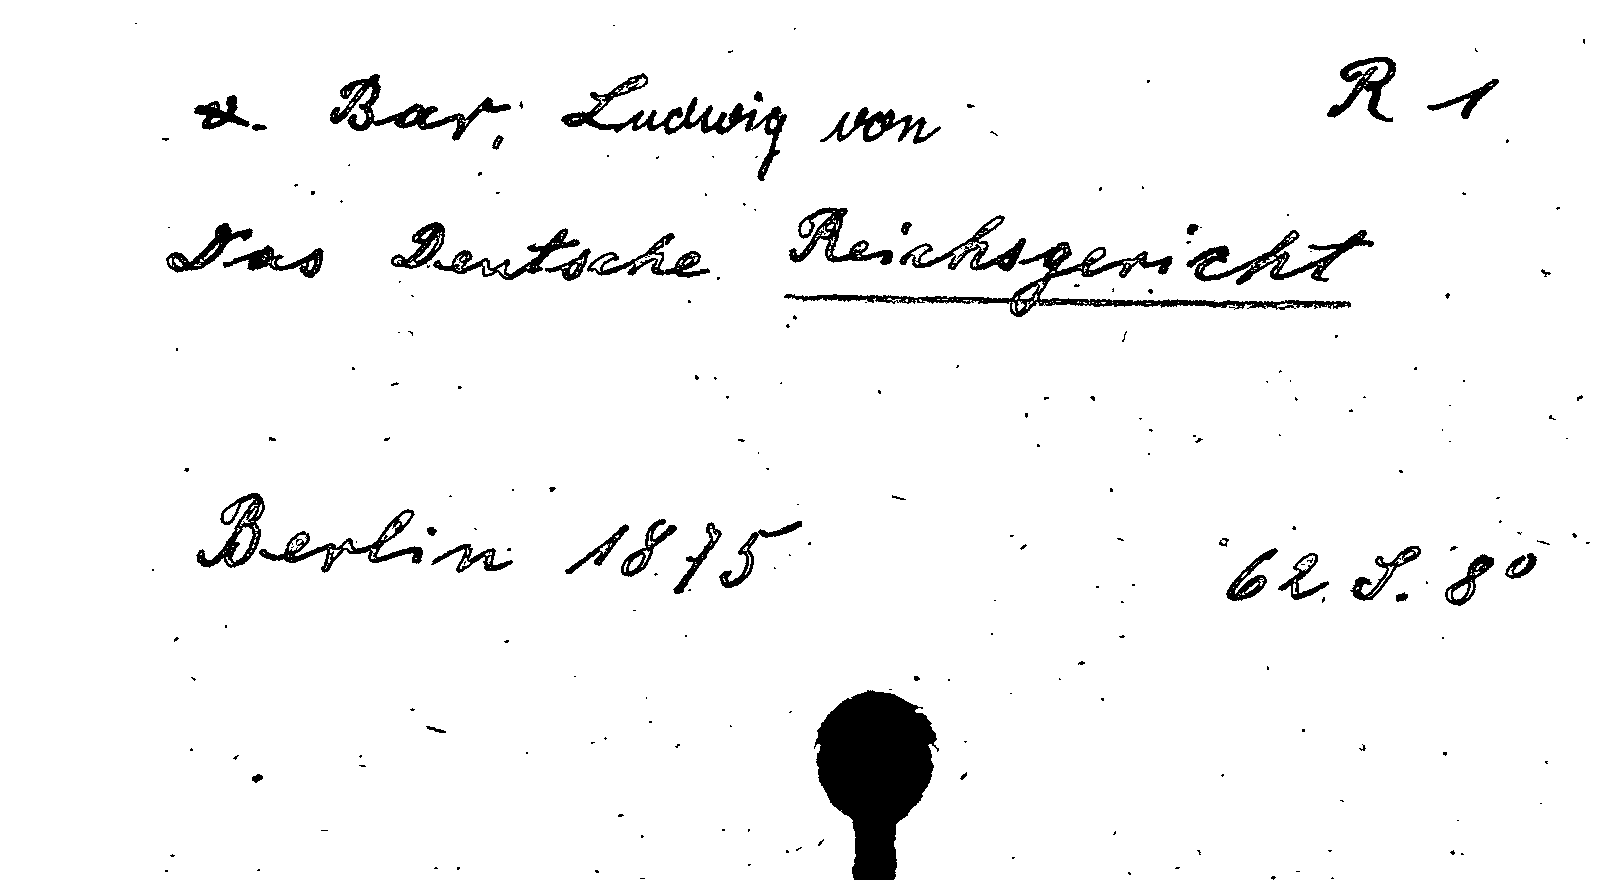 v. Bar, Ludwig von R 1
Das Deutsche Reichsgericht
Berlin 1875 62 S. 8°